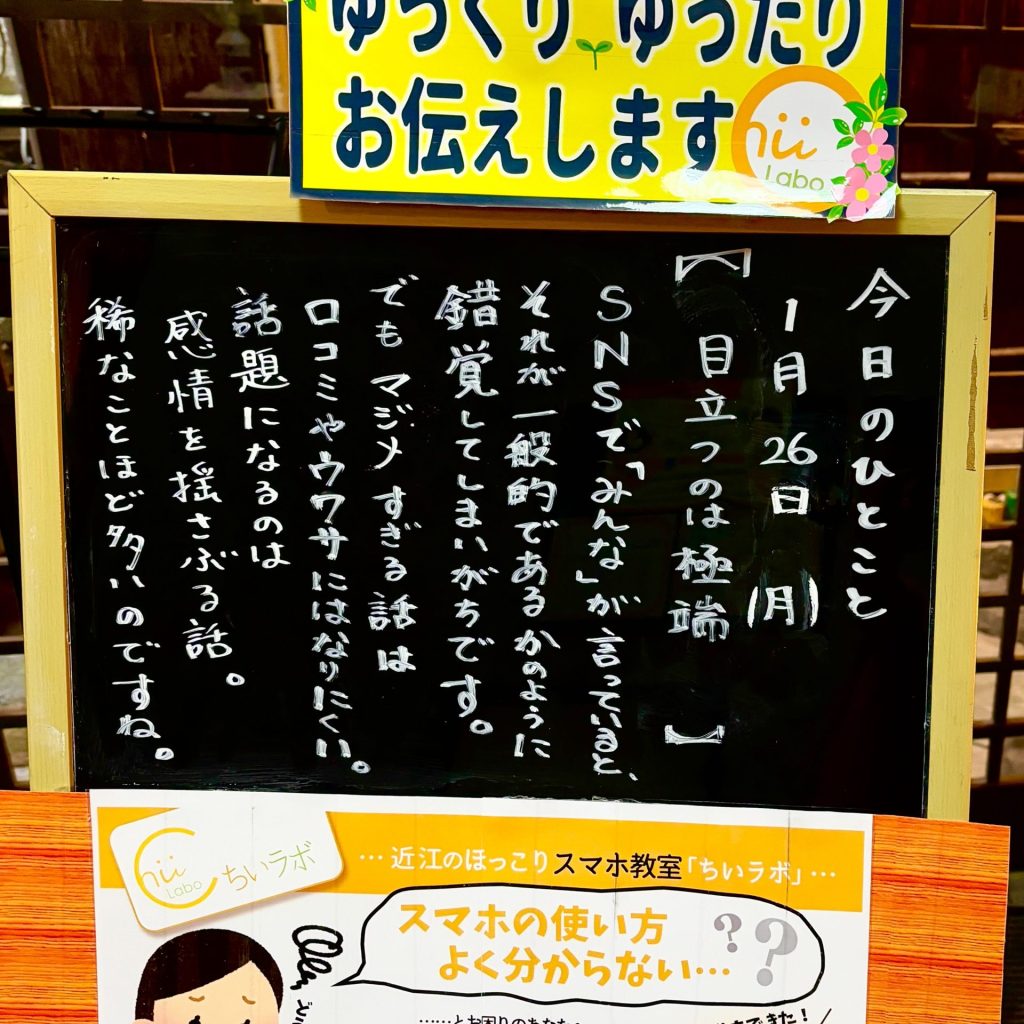 ゆっくり ゆったり
お伝えします
hii
Labo
今日のひとこと
1月26日(月)
【目立つのは極端】
SNSで「みんな」が言っていると、
それが一般的であるかのように
錯覚してしまいがちです。
でもマジメすぎる話は
口コミやウワサにはなりにくい。
話題になるのは
感情を揺さぶる話。
稀なことほど多いのですね。
Chii
Labo
ちいラボ
…近江のほっこりスマホ教室「ちいラボ」…
スマホの使い方
よく分からない…
??